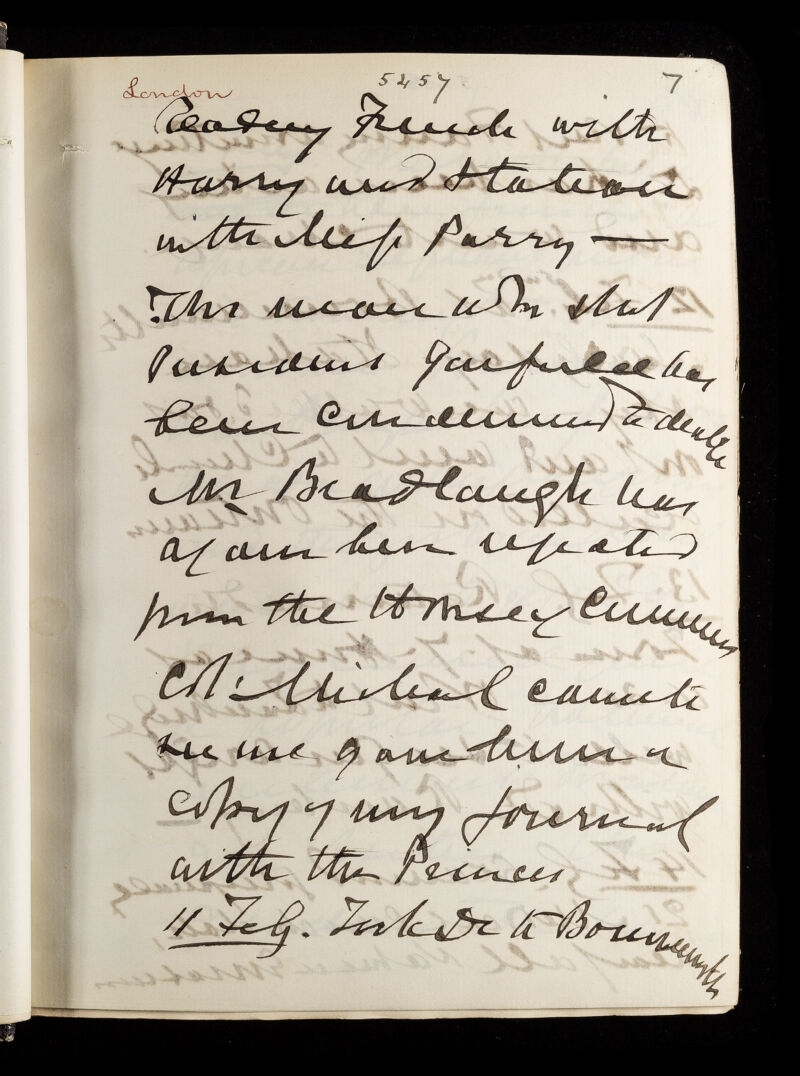 London 5457 7
Reading French with
Harry and Station
with Miss Parry —
The man who shot
President Garfield has
been condemned to death
Mr Bradlaugh has
again been rejected
from the House of Commons
Col: Micheal came to
see me gave him a
copy of my Journal
with the Princes
11 Feb. Took to Bournemouth